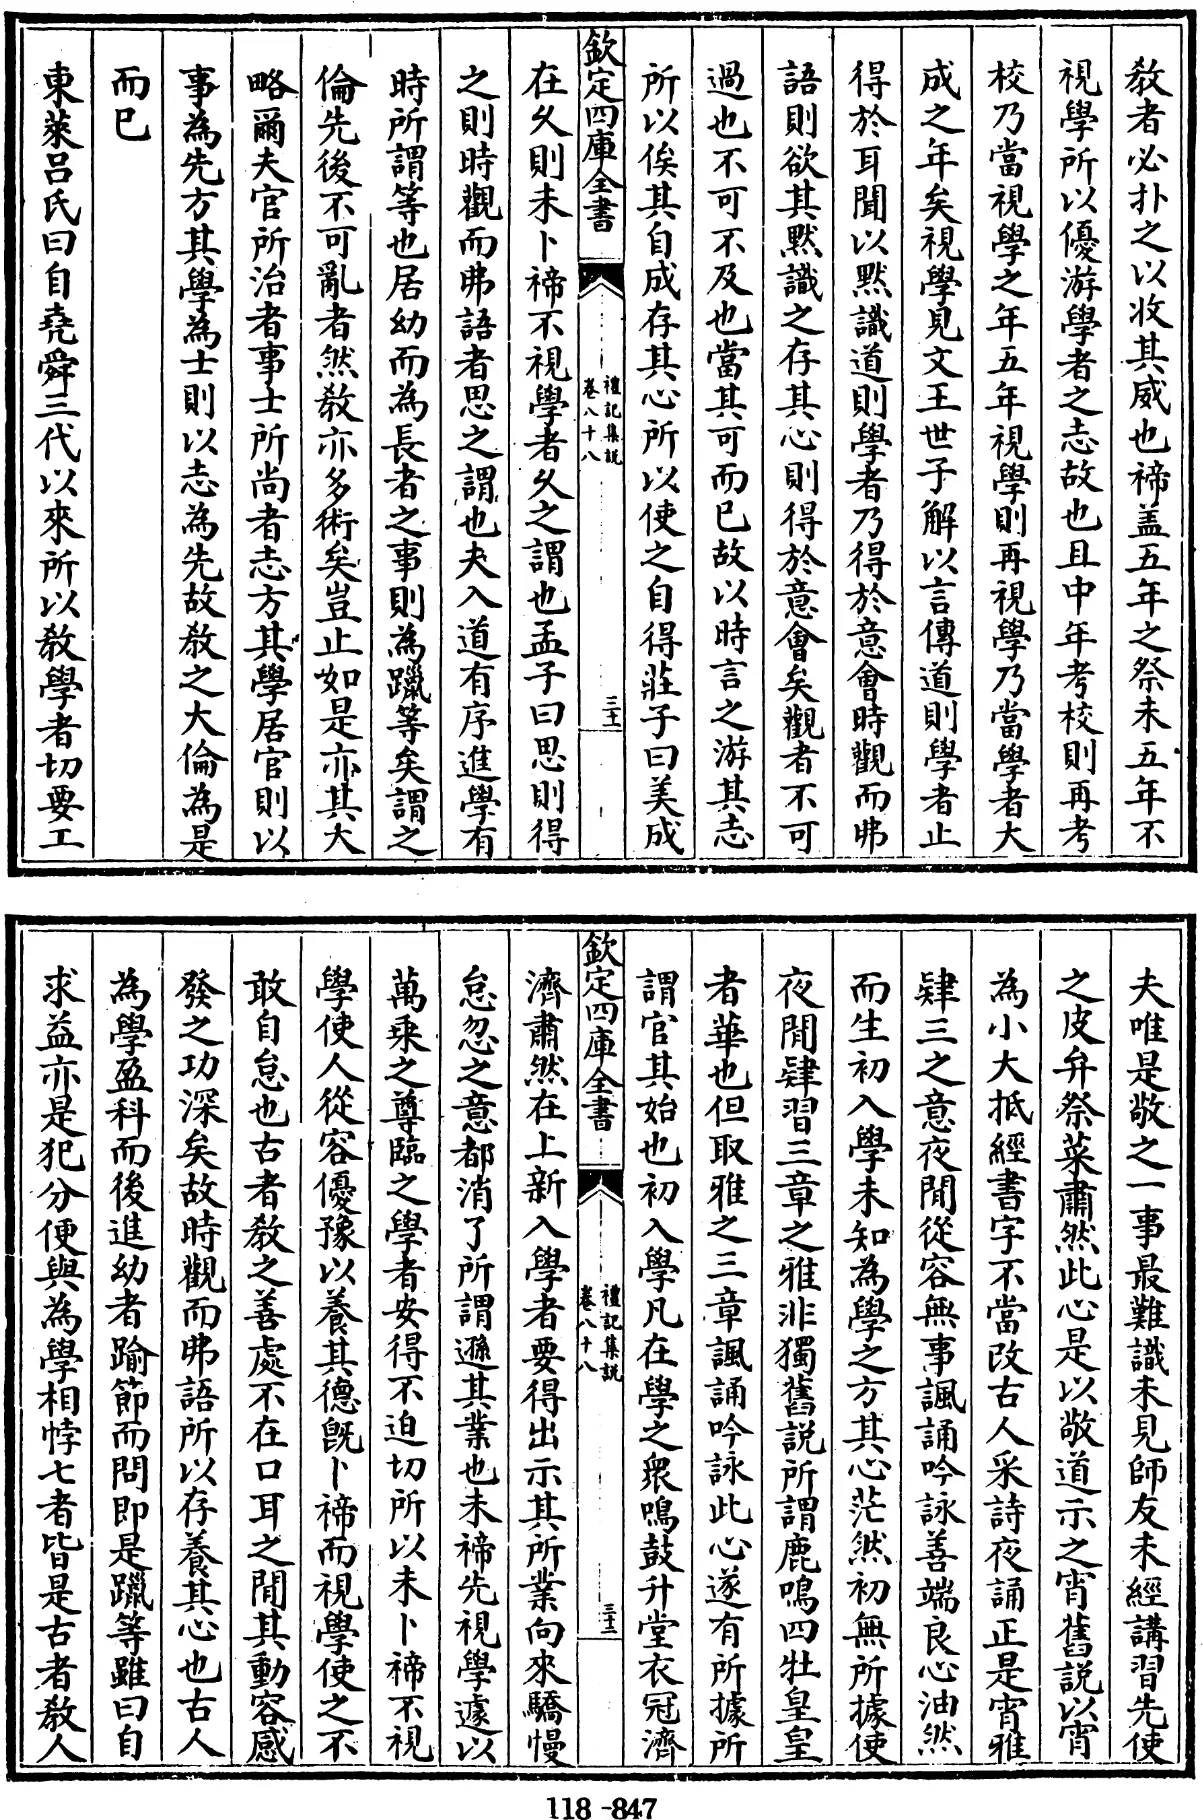 教者必扑之以收其威也禘盖五年之祭未五年不
視學所以優游學者之志故也且中年考校則再考
校乃當視學之年五年視學則再視學乃當學者大
成之年矣視學見文王世子解以言傳道則學者止
得於耳聞以默識道則學者乃得於意會時觀而弗
語則欲其默識之存其心則得於意會矣觀者不可
過也不可不及也當其可而已故以時言之游其志
所以俟其自成存其心所以使之自得莊子曰美成
欽定四庫全書
禮記集説
卷八十八
三十一
在久則未卜禘不視學者久之謂也孟子曰思則得
之則時觀而弗語者思之謂也夫入道有序進學有
時所謂等也居幼而為長者之事則為躐等矣謂之
倫先後不可亂者然教亦多術矣豈止如是亦其大
略爾夫官所治者事士所尚者志方其學居官則以
事為先方其學為士則以志為先故教之大倫為是
而已
東萊呂氏曰自堯舜三代以來所以教學者切要工
夫唯是敬之一事最難識未見師友未經講習先使
之皮弁祭菜肅然此心是以敬道示之宵舊説以宵
為小大抵經書字不當改古人采詩夜誦正是宵雅
肄三之意夜閒從容無事諷誦吟詠善端良心油然
而生初入學未知為學之方其心茫然初無所據使
夜閒肄習三章之雅非獨舊説所謂鹿鳴四牡皇皇
者華也但取雅之三章諷誦吟詠此心遂有所據所
謂官其始也初入學凡在學之衆鳴鼓升堂衣冠濟
欽定四庫全書
禮記集説
卷八十八
三十二
濟肅然在上新入學者要得出示其所業向來驕慢
怠忽之意都消了所謂遜其業也未禘先視學遽以
萬乘之尊臨之學者安得不迫切所以未卜禘不視
學使人從容優豫以養其德既卜禘而視學使之不
敢自怠也古者教之善處不在口耳之閒其動容感
發之功深矣故時觀而弗語所以存養其心也古人
為學盈科而後進幼者踰節而問即是躐等雖曰自
求益亦是犯分便與為學相悖七者皆是古者教人
118-847